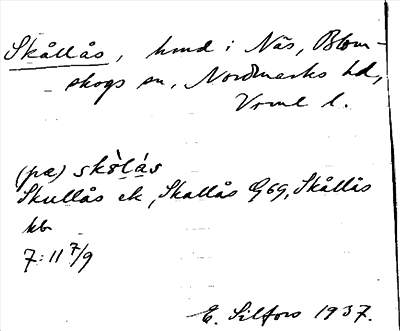 Skållås, hmd i Näs, Blom-
skogs sn, Nordmarks hd,
Vrml l.
(pæ) skɔ̀lás
Skullås ek, Skallås G69, Skållås
kb
7:11 7/9
E. Silfors 1937.